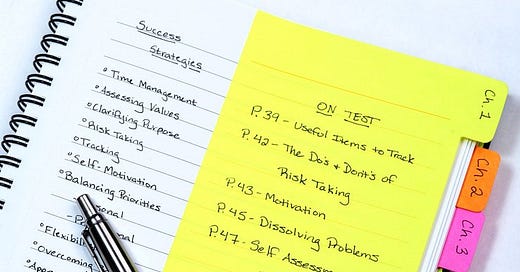 Success
Strategies
Time Management
Assessing Values
Clarifying Purpose
Risk Taking
Tracking
Self-Motivation
Balancing Priorities
Overcoming
ON TEST
P. 39 - Useful Items to Track
P. 42 - The Do's & Dont's of
Risk Taking
P. 43 - Motivation
P. 45 - Dissolving Problems
P. 47 - Self
Ch. 1
Ch. 2
Ch. 3